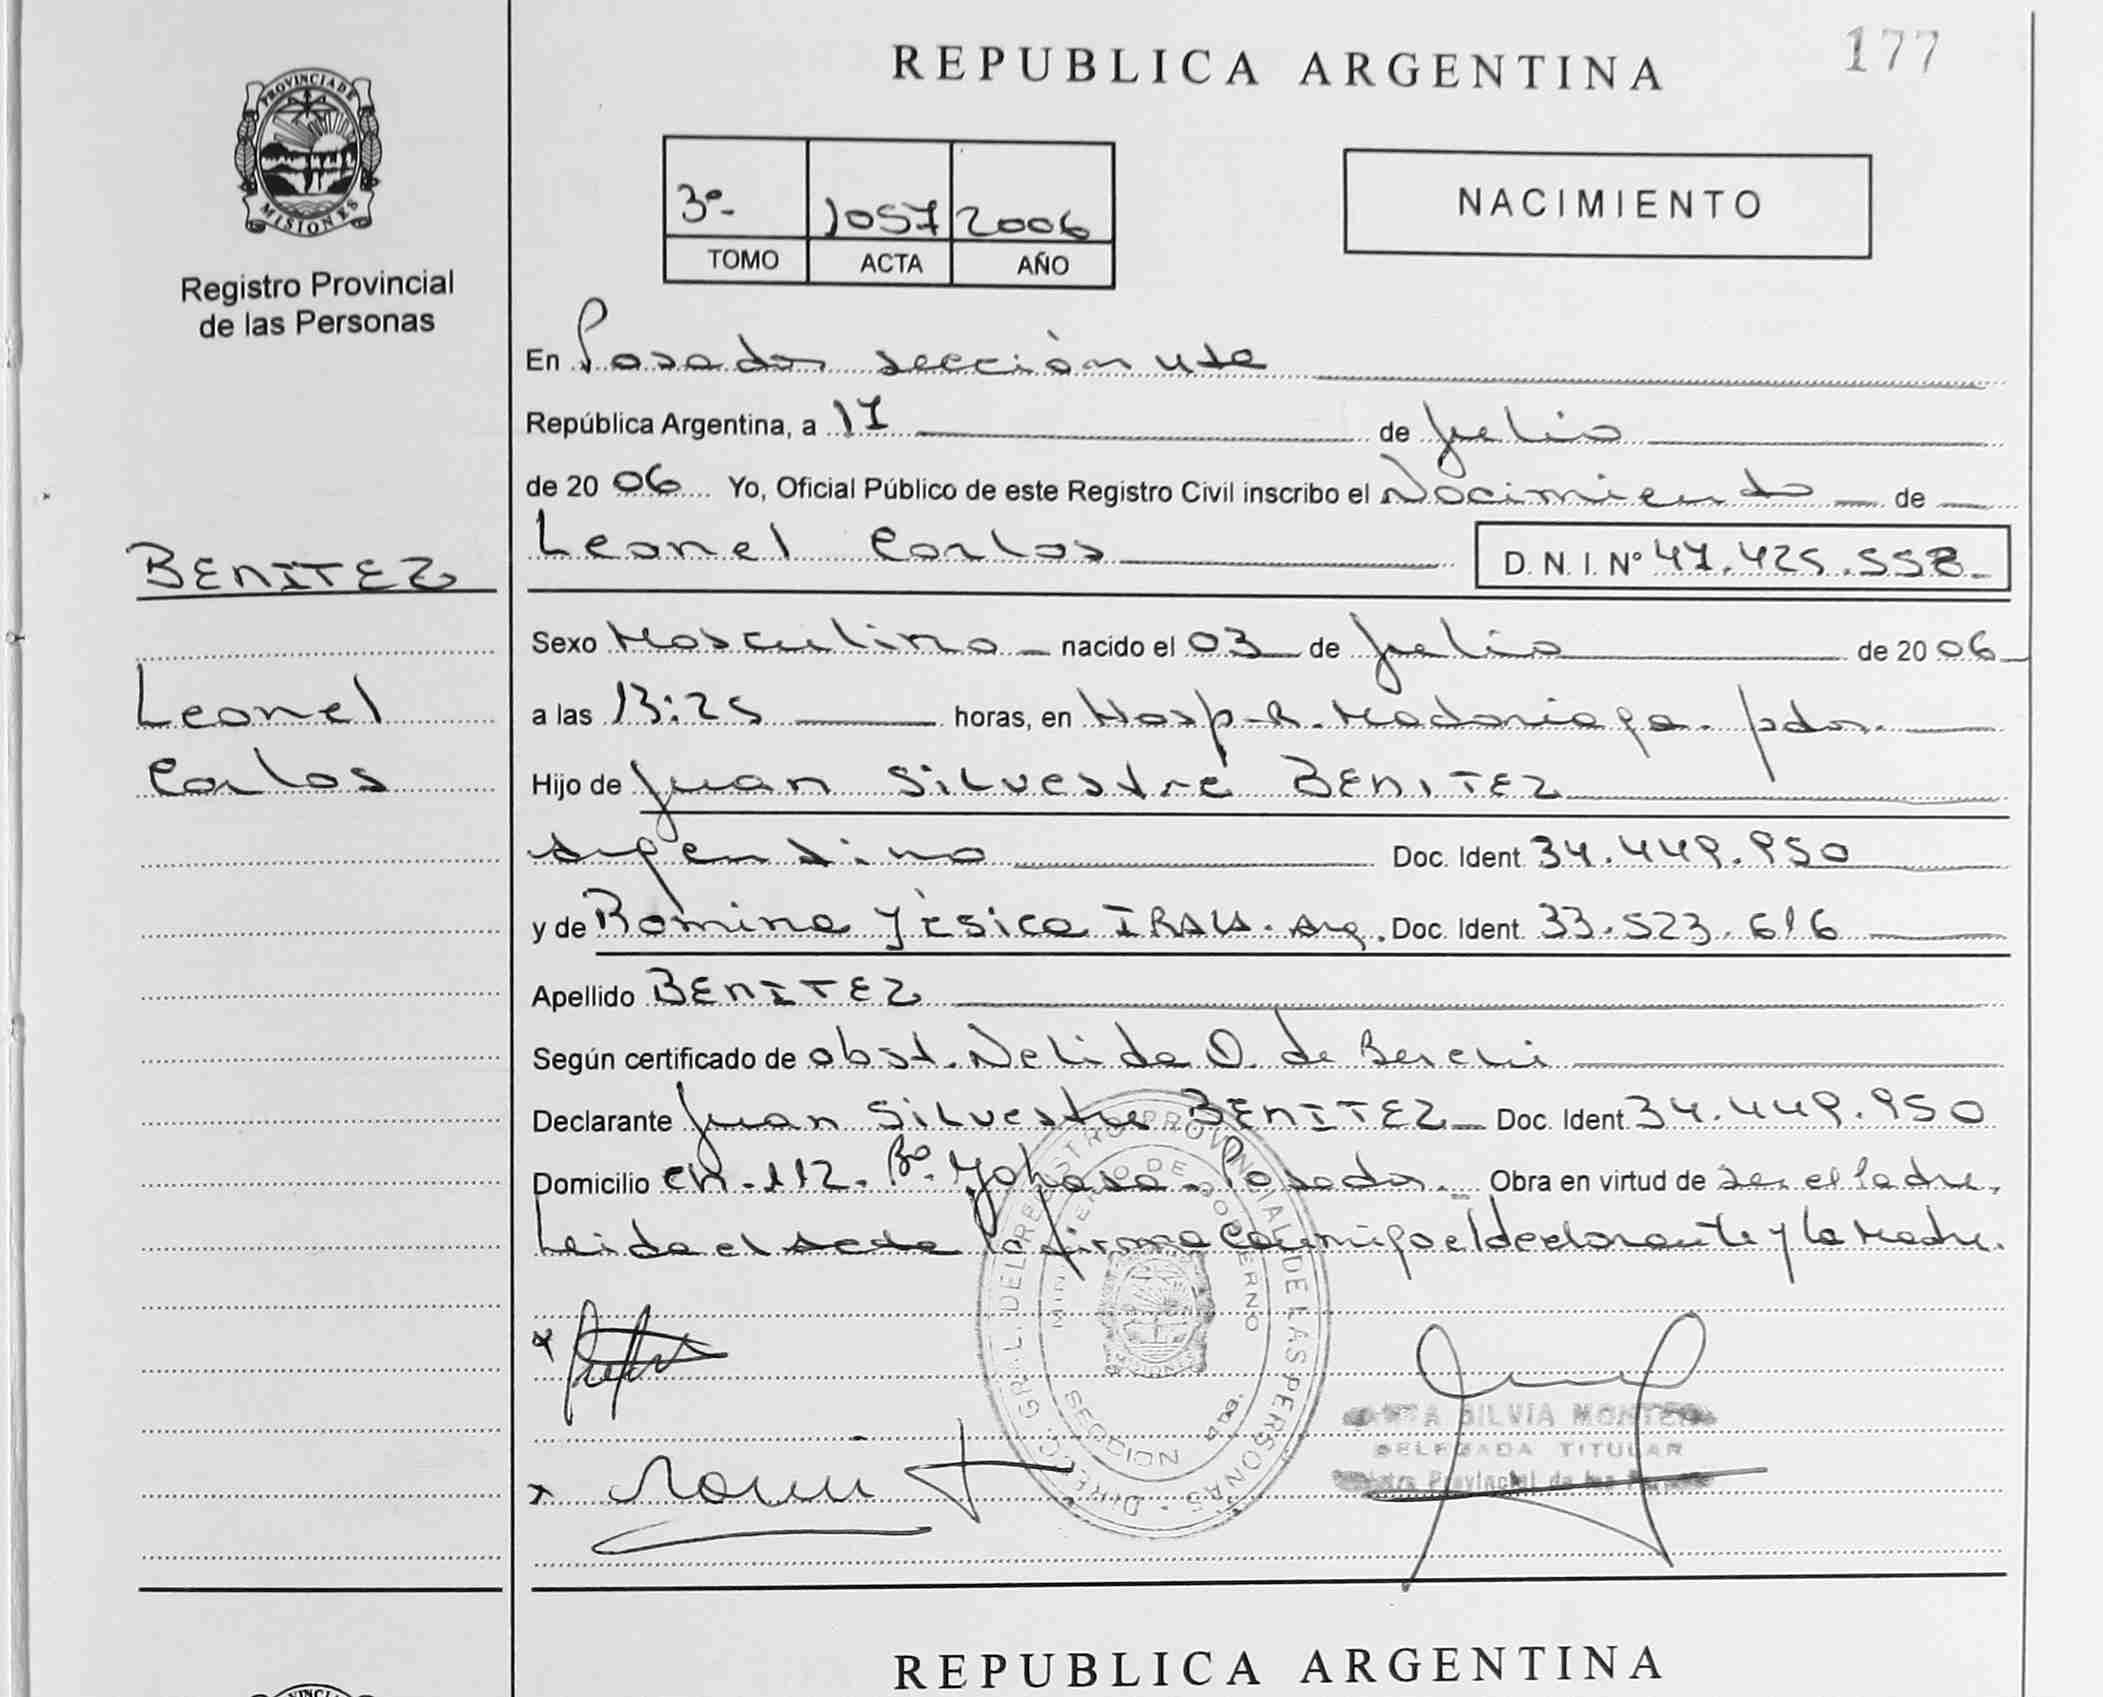 REPUBLICA ARGENTINA
177
PROVINCIA DE MISIONES
Registro Provincial
de las Personas
3º- 1057 2006
TOMO ACTA AÑO
NACIMIENTO
En Posadas sección
República Argentina, a 17 de julio
de 2006 Yo, Oficial Público de este Registro Civil inscribo el Nacimiento de
Leonel Carlos D.N.I. Nº 47.425.558
BENITEZ
Leonel
Carlos
Sexo Masculino nacido el 03 de julio de 2006
a las 13:25 horas, en Hosp. R. Madariaga. pdas.
Hijo de Juan Silvestre BENITEZ
argentino Doc. Ident. 34.449.950
y de Romina Yésica IRALA. Arg. Doc. Ident. 33.523.616
Apellido BENITEZ
Según certificado de obst. Nelida O. de
Declarante Juan Silvestre BENITEZ Doc. Ident. 34.449.950
Domicilio ch. 112. Bº. Yohasá. Posadas. Obra en virtud de ser el padre.
Leida el acta la firma conmigo el declarante y la madre.
DIRECC. GRAL. DEL REGISTRO PROVINCIAL DE LAS PERSONAS
MINISTERIO DE GOBIERNO
SECCION
SILVIA
DELEGADA TITULAR
Provincial de las
REPUBLICA ARGENTINA